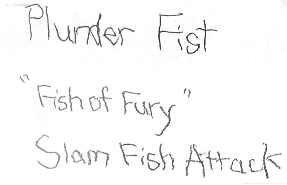 Plunder Fist
"Fish of Fury"
Slam Fish Attack